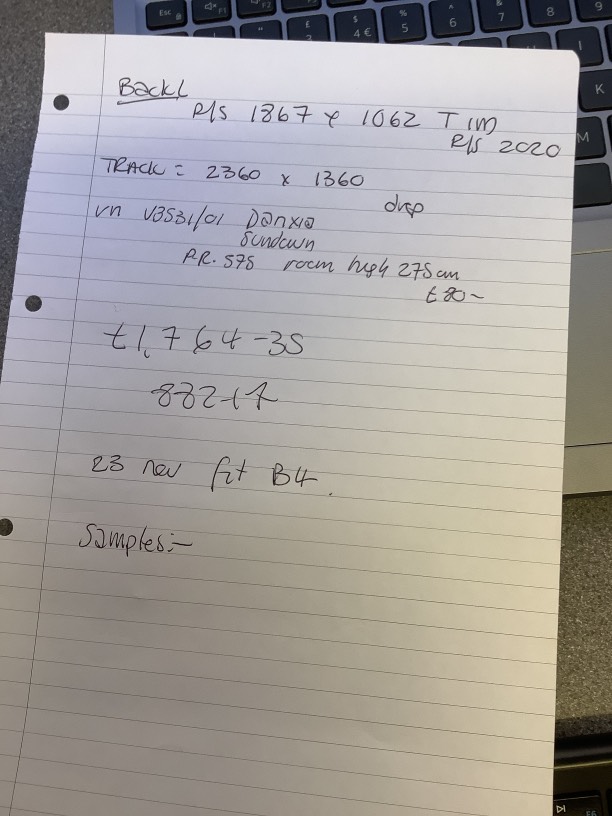 Back L
R/S 1867 x 1062 T IM
R/S 2020
TRACK = 2360 x 1360
drop
VN V3531/01 Danxia
Sundown
P.R. 575 room high 275cm
£80~
£1,764-35
882-17
23 nov fit B4.
Samples:-
Esc
F1
F2
£
3
$
4 €
%
5
^
6
&
7
8
9
I
K
M
F6